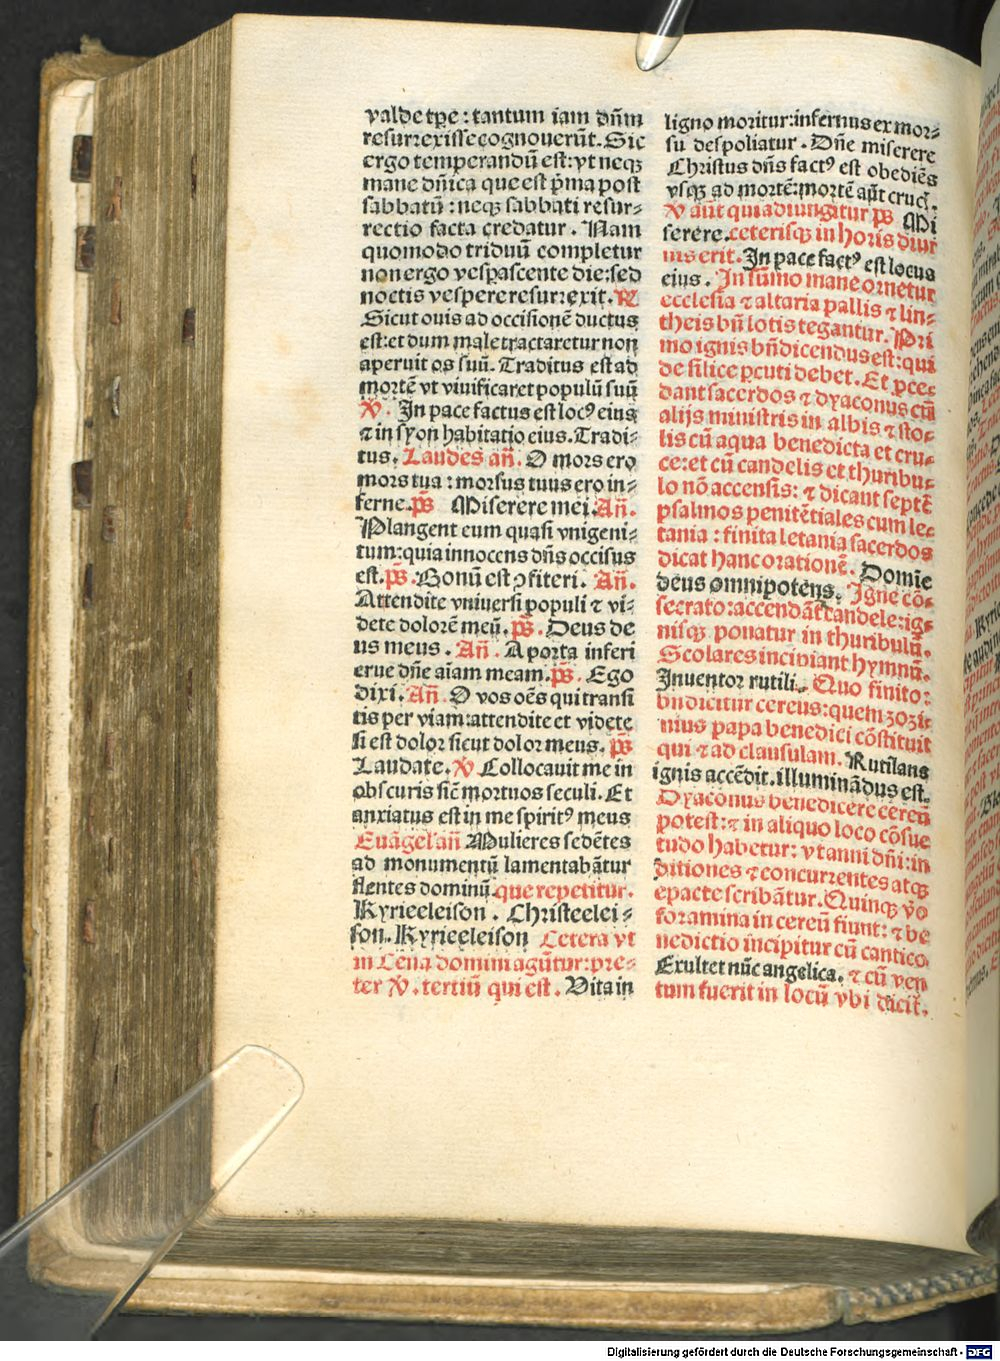 valde tp̄e : tantum iam dn̄m
resurrexisse cognouerūt. Sic
ergo temperandū est: vt neqꝫ
mane dn̄ica que est pͥma post
sabbatū : neqꝫ sabbati resur⸗
rectio facta credatur . Nam
quomodo triduū completur
non ergo vesꝑascente die: sed
noctis vespere resurrexit. ℟
Sicut ouis ad occisionē ductus
est: et dum male tractaretur non
aperuit os suū. Traditus est ad
mortē vt viuificaret populū suū
℣. In pace factus est locꝰ eius
⁊ in syon habitatio eius. Tradi⸗
tus. Laudes an̄. O mors ero
mors tua : morsus tuus ero in⸗
ferne. ps̄ Miserere mei. An̄.
Plangent eum quasi vnigeni⸗
tum: quia innocens dn̄s occisus
est. ps̄. Bonū est ꝯfiteri. An̄.
Attendite vniuersi populi ⁊ vi⸗
dete dolorē meū. ps̄. Deus de
us meus . An̄ . A porta inferi
erue dn̄e aīam meam. ps̄. Ego
dixi. An̄. O vos oēs qui transi
tis per viam: attendite et videte
si est dolor sicut dolor meus. ps̄
Laudate. ℣ Collocauit me in
obscuris sic̄ mortuos seculi. Et
anxiatus est in me spiritꝰ meus
Euāgel̄ an̄ Mulieres sedētes
ad monumentū lamentabātur
flentes dominū. que repetitur.
Kyrieeleison . Christeelei⸗
son. Kyrieeleison Cetera vt
in Cena domini agūtur: pre⸗
ter ℣. tertiū qui est. Vita in
ligno moritur: infernus ex mor⸗
su despoliatur . Dn̄e miserere
Christus dn̄s factꝰ est obediēs
vsqꝫ ad mortē: mortē aūt crucꝭ.
℣ aūt qui adiungitur ps̄ Mi
serere. ceterisqꝫ in horis diur
nis erit. In pace factꝰ est locus
eius . In sūmo mane ornetur
ecclesia ⁊ altaria pallis ⁊ lin⸗
theis bn̄ lotis tegantur. Pri
mo ignis bn̄dicendus est: qui
de silice ꝑcuti debet. Et ꝓce⸗
dant sacerdos ⁊ dyaconus cū
alijs ministris in albis ⁊ sto⸗
lis cū aqua benedicta et cru⸗
ce: et cū candelis et thuribu⸗
lo nō accensis: ⁊ dicant septē
psalmos penitētiales cum le⸗
tania : finita letania sacerdos
dicat hanc orationē. Domīe
deus omnipotens. Igne cō⸗
secrato: accendāt̄ candele: ig⸗
nisqꝫ ponatur in thuribulū.
Scolares incipiant hymnū.
Inuentor rutili. Quo finito:
bn̄dicitur cereus: quem zozi⸗
mus papa benedici cōstituit
qui ⁊ ad clausulam. Rutilans
ignis accēdit. illuminādus est.
Dyaconus benedicere cereū
potest: ⁊ in aliquo loco cōsue
tudo habetur: vt anni dn̄i: in
ditiones ⁊ concurrentes atqꝫ
epacte scribātur. Quinqꝫ v̄o
foramina in cereū fiunt: ⁊ be
nedictio incipitur cū cantico
Exultet nūc angelica. ⁊ cū ven
tum fuerit in locū vbi dicit̄.
Digitalisierung gefördert durch die Deutsche Forschungsgemeinschaft - DFG